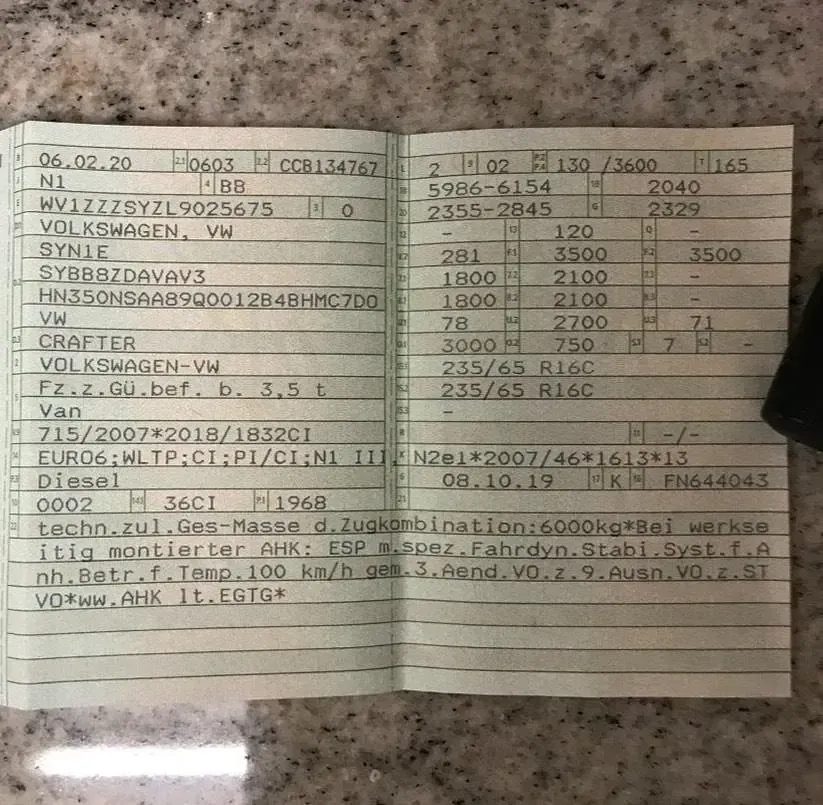 06.02.20 0603 CCB134767
N1 BB
WV1ZZZSYZL9025675 0
VOLKSWAGEN, VW
SYN1E
SYBB8ZDAVAV3
HN350NSAA89Q0012B4BHMC7D0
VW
CRAFTER
VOLKSWAGEN-VW
Fz.z.Gü.bef. b. 3,5 t
Van
715/2007*2018/1832CI
EURO6;WLTP;CI;PI/CI;N1 III, N2
Diesel
0002 36CI 1968
2 02 130 /3600 165
5986-6154 2040
2355-2845 2329
- 120 -
281 3500 3500
1800 2100 -
1800 2100 -
78 2700 71
3000 750 7 -
235/65 R16C
235/65 R16C
-
-/-
e1*2007/46*1613*13
08.10.19 K FN644043
techn.zul.Ges-Masse d.Zugkombination:6000kg*Bei werkse
itig montierter AHK: ESP m.spez.Fahrdyn.Stabi.Syst.f.A
nh.Betr.f.Temp.100 km/h gem.3.Aend.VO.z.9.Ausn.VO.z.ST
VO*ww.AHK lt.EGTG*